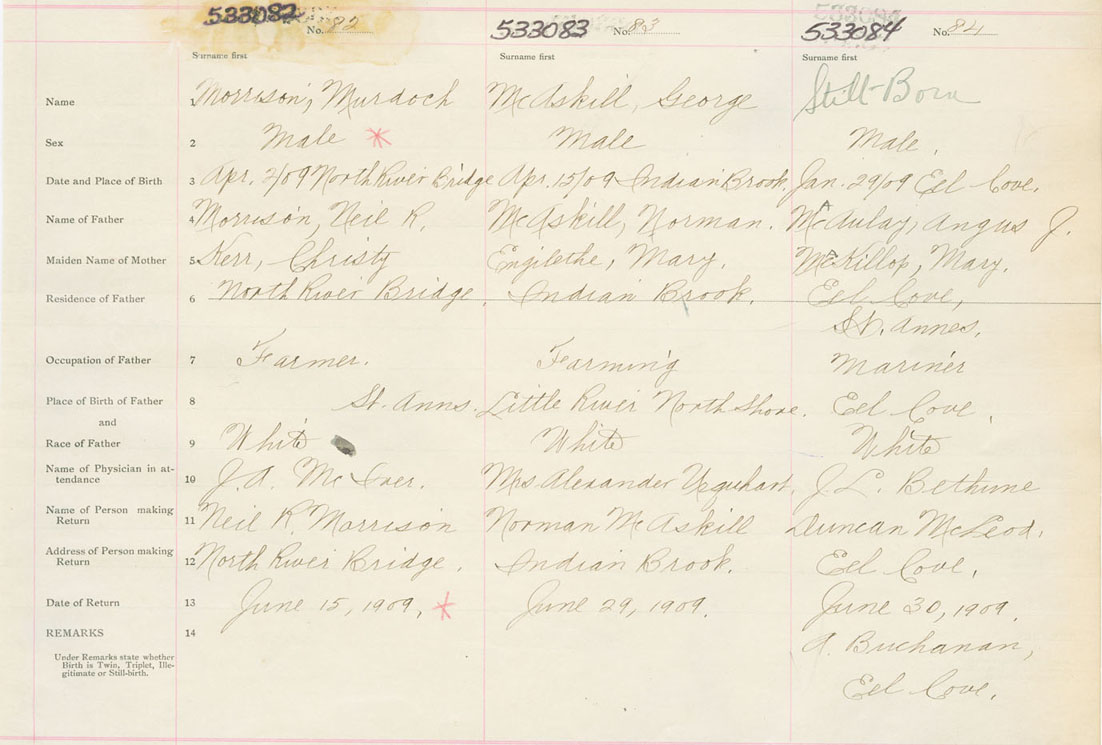 533082 No. 82 533083 No. 83 533084 No. 84
Surname first Surname first Surname first
Name 1 Morrison, Murdoch McAskill, George Still-Born
Sex 2 Male Male Male.
Date and Place of Birth 3 Apr. 2/09 North River Bridge Apr. 15/09 Indian Brook. Jan. 29/09 Eel Cove.
Name of Father 4 Morrison, Neil R. McAskill, Norman. McAulay, Angus J.
Maiden Name of Mother 5 Kerr, Christy Mary. McKillop, Mary.
Residence of Father 6 North River Bridge. Indian Brook. Eel Cove,
St. Annes.
Occupation of Father 7 Farmer. Farming Mariner
Place of Birth of Father 8 St. Anns. Little River North Shore. Eel Cove.
and
Race of Father 9 White White White
Name of Physician in at-
tendance 10 J. A. McIver. Mrs. Alexander Urquhart. J. L. Bethune
Name of Person making
Return 11 Neil R. Morrison Norman McAskill Duncan McLeod.
Address of Person making
Return 12 North River Bridge. Indian Brook. Eel Cove.
Date of Return 13 June 15, 1909. June 29, 1909. June 30, 1909.
REMARKS 14 A. Buchanan,
Under Remarks state whether
Birth is Twin, Triplet, Ille-
gitimate or Still-birth.
Eel Cove.